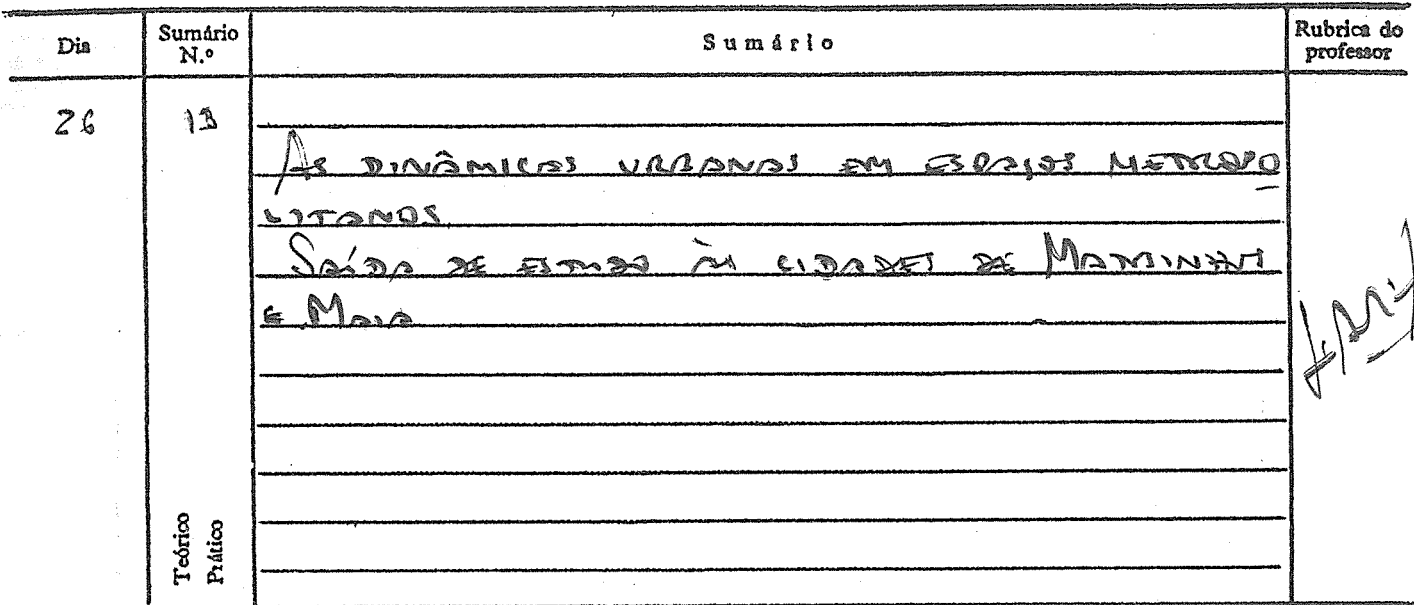 Dia Sumário N.º Sumário Rubrica do professor
26 13
As DINÂMICAS URBANAS EM ESPAÇOS METROPO
LITANOS
SAÍDA DE ESTUDO ÀS CIDADES DE MATOSINHOS
E MAIA
Teórico
Prático